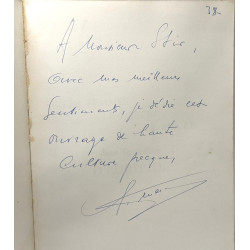 38-
A Monsieur
Avec mes meilleurs
Sentiments, je dédie cet
ouvrage de haute
Culture grecque